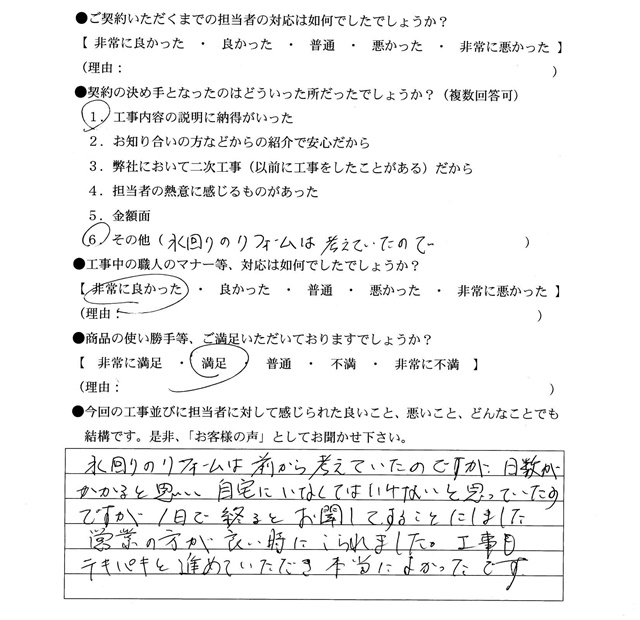 ●ご契約いただくまでの担当者の対応は如何でしたでしょうか？
【 非常に良かった ・ 良かった ・ 普通 ・ 悪かった ・ 非常に悪かった 】
（理由： ）
●契約の決め手となったのはどういった所だったでしょうか？（複数回答可）
１．工事内容の説明に納得がいった
２．お知り合いの方などからの紹介で安心だから
３．弊社において二次工事（以前に工事をしたことがある）だから
４．担当者の熱意に感じるものがあった
５．金額面
６．その他（水回りのリフォームは考えていたので ）
●工事中の職人のマナー等、対応は如何でしたでしょうか？
【 非常に良かった ・ 良かった ・ 普通 ・ 悪かった ・ 非常に悪かった 】
（理由： ）
●商品の使い勝手等、ご満足いただいておりますでしょうか？
【 非常に満足 ・ 満足 ・ 普通 ・ 不満 ・ 非常に不満 】
（理由： ）
●今回の工事並びに担当者に対して感じられた良いこと、悪いこと、どんなことでも
結構です。是非、「お客様の声」としてお聞かせ下さい。
水回りのリフォームは前から考えていたのですが、日数が
かかると思い、自宅にいなくてはいけないと思っていたの
ですが1日で終るとお聞してすることにしました
営業の方が良い時にこられました。工事も
テキパキと進めていただき本当によかったです